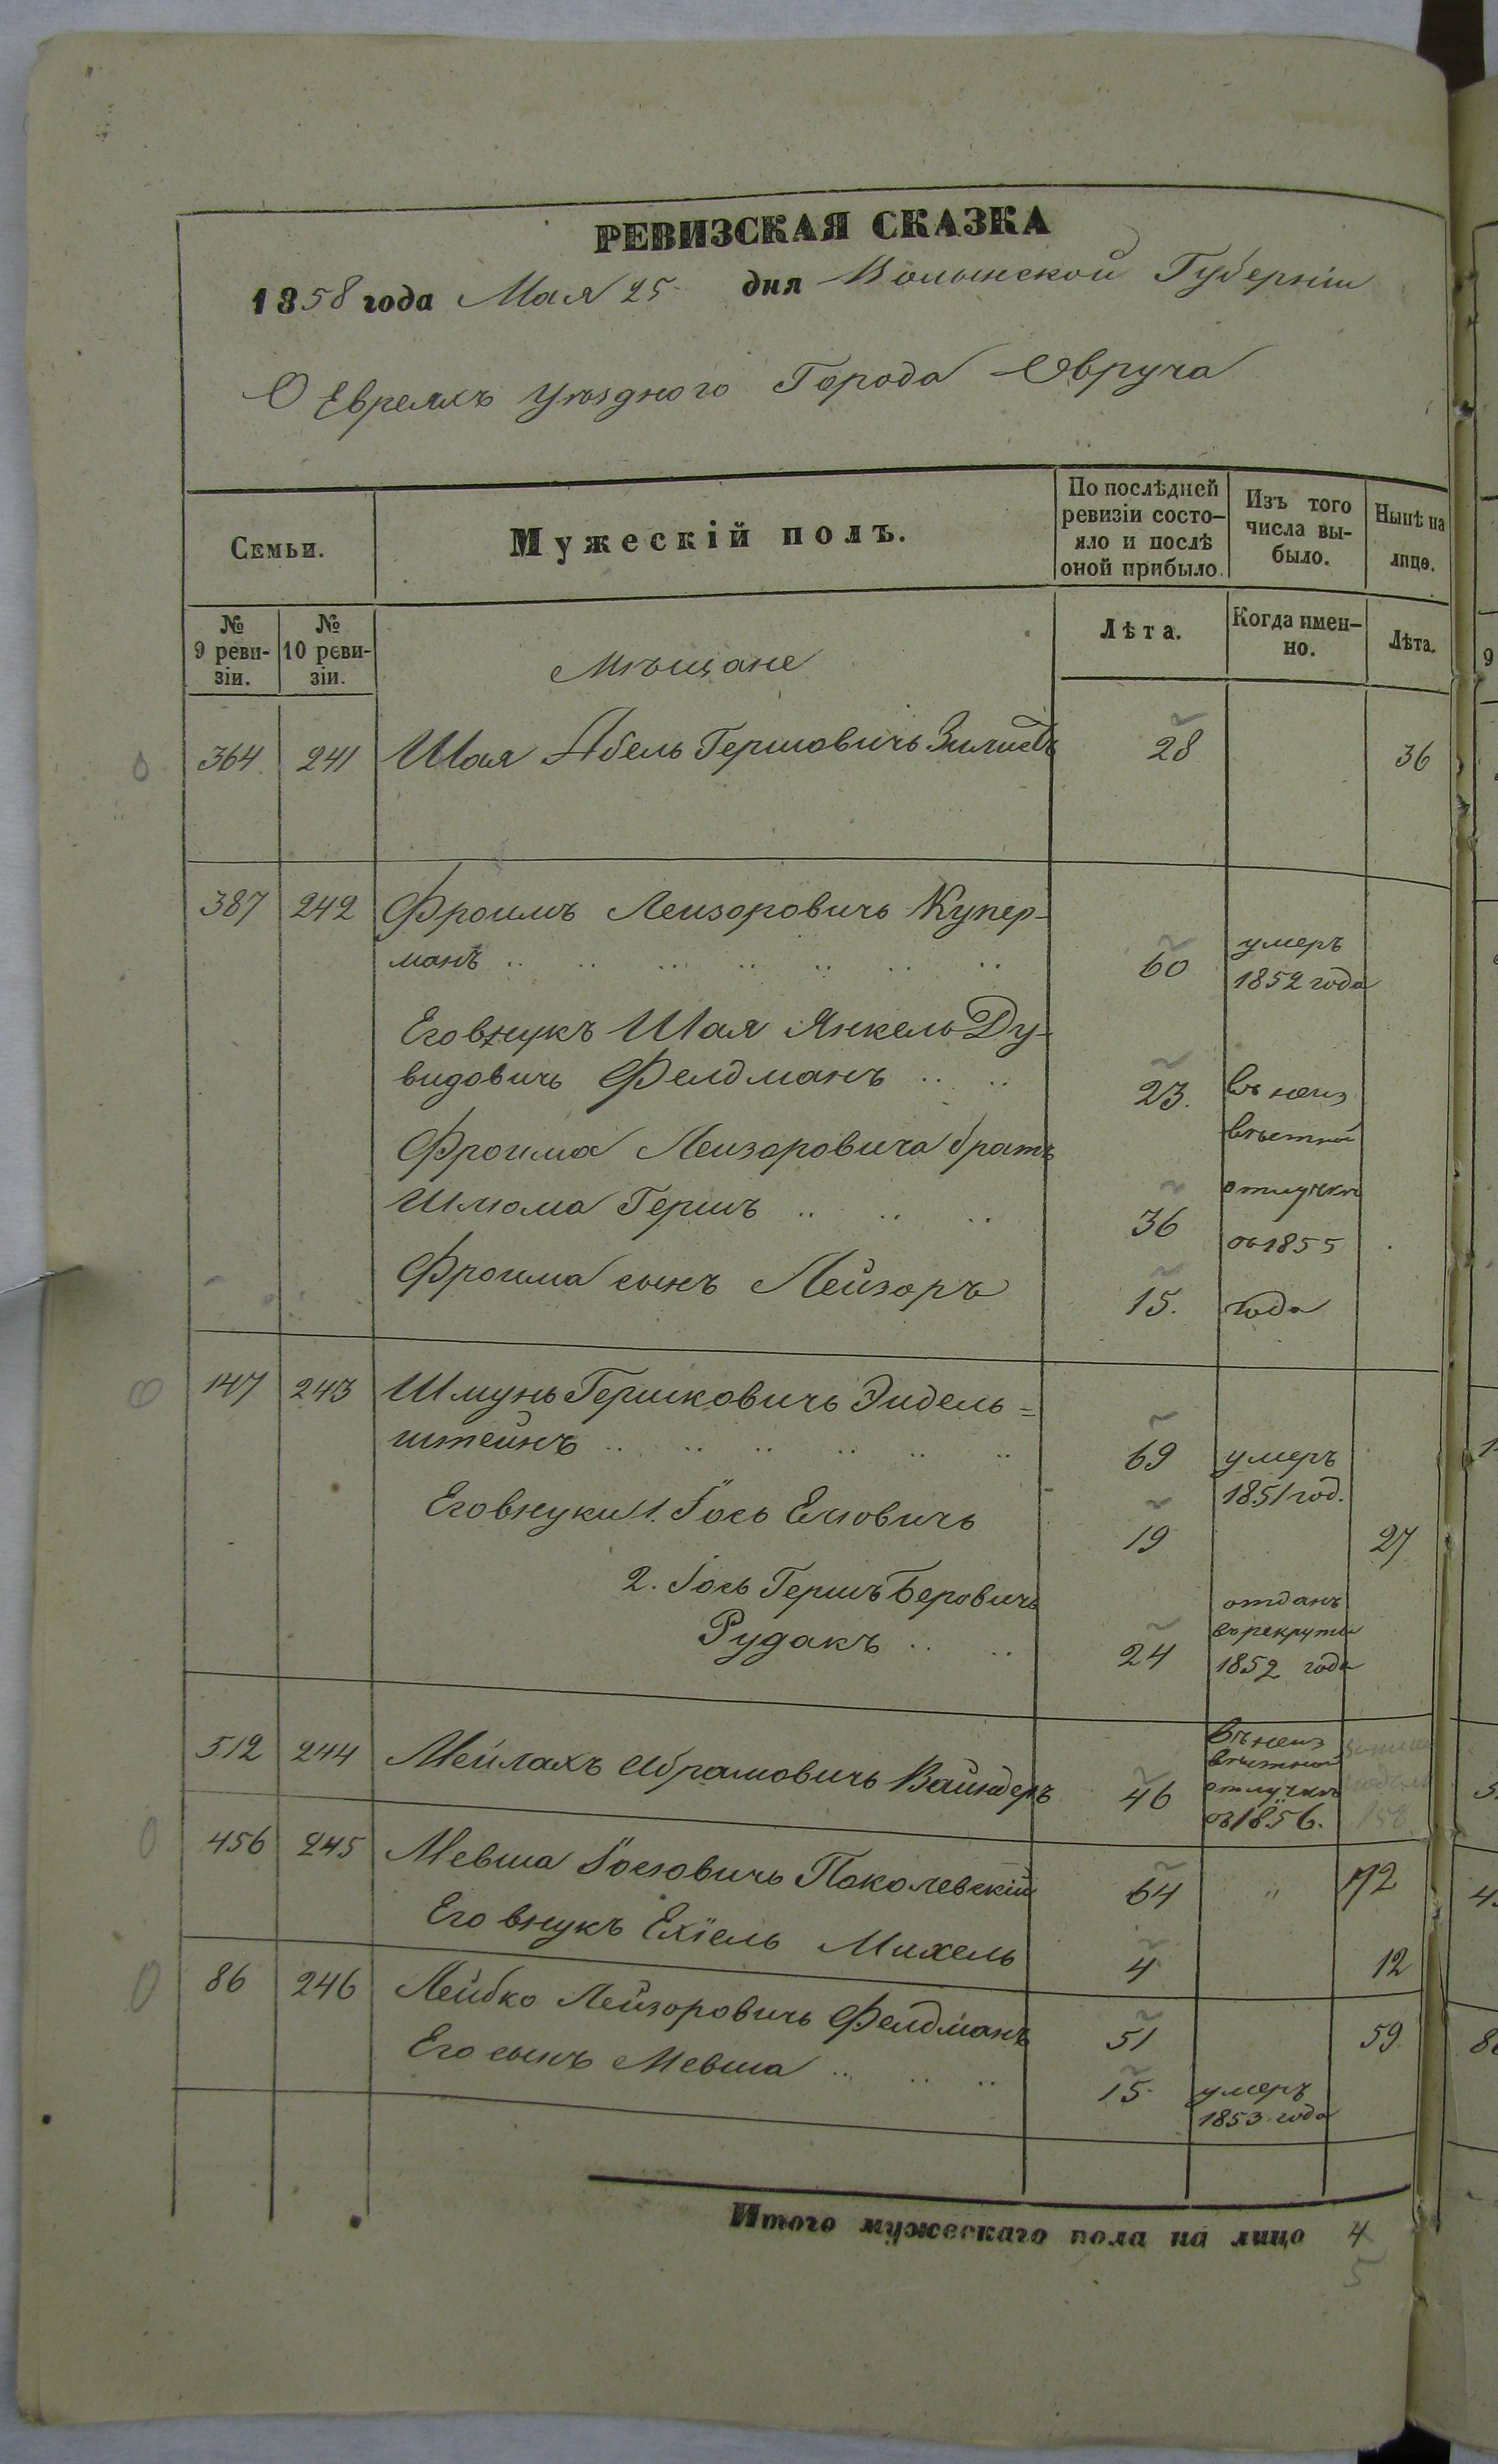 РЕВИЗСКАЯ СКАЗКА
1858 года Мая 25 дня Волынской Губерніи
О Евреяхъ Уѣзднаго Города Овруча
Семьи. Мужескій полъ. По послѣдней ревизіи состо-яло и послѣ оной прибыло. Изъ того числа вы-было. Нынѣ на лицо.
№ 9 реви-зіи. № 10 реви-зіи. Лѣта. Когда имен-но. Лѣта.
Мѣщане
364 241 Шая Абель Гершовичъ 28 36
387 242 Фроимъ Лейзоровичъ Купер-
манъ .. .. .. .. .. .. .. 60 умеръ 1852 года
Его внукъ Шая Янкель Ду-
видовичъ Фелдманъ .. .. 23. въ неиз
Фроима Лейзоровича братъ вѣстной
Шлюма Гершъ .. .. .. 36 отлучкѣ
съ 1855
Фроима сынъ Лейзоръ 15. года
147 243 Шмунь Гершковичъ Эидель=
штейнъ .. .. .. .. .. .. 69 умеръ 1851 год.
Его внуки 1. Іось Еліовичъ 19 27
2. Іось Гершъ Беровичъ
Рудакъ .. .. 24 отданъ въ рекруты 1852 года
512 244 Мейлахъ Абрамовичъ Вайндеръ 46 въ неиз вѣстной отлучкѣ съ 1856.
456 245 Мевша Іосіовичъ Поколевскій 64 " 72
Его внукъ Ехіель Михель 4 12
86 246 Лейбко Лейзоровичъ Фелдманъ 51 59
Его сынъ Мевша .. .. .. 15. умеръ 1853 года
Итого мужескаго пола на лицо 4
5